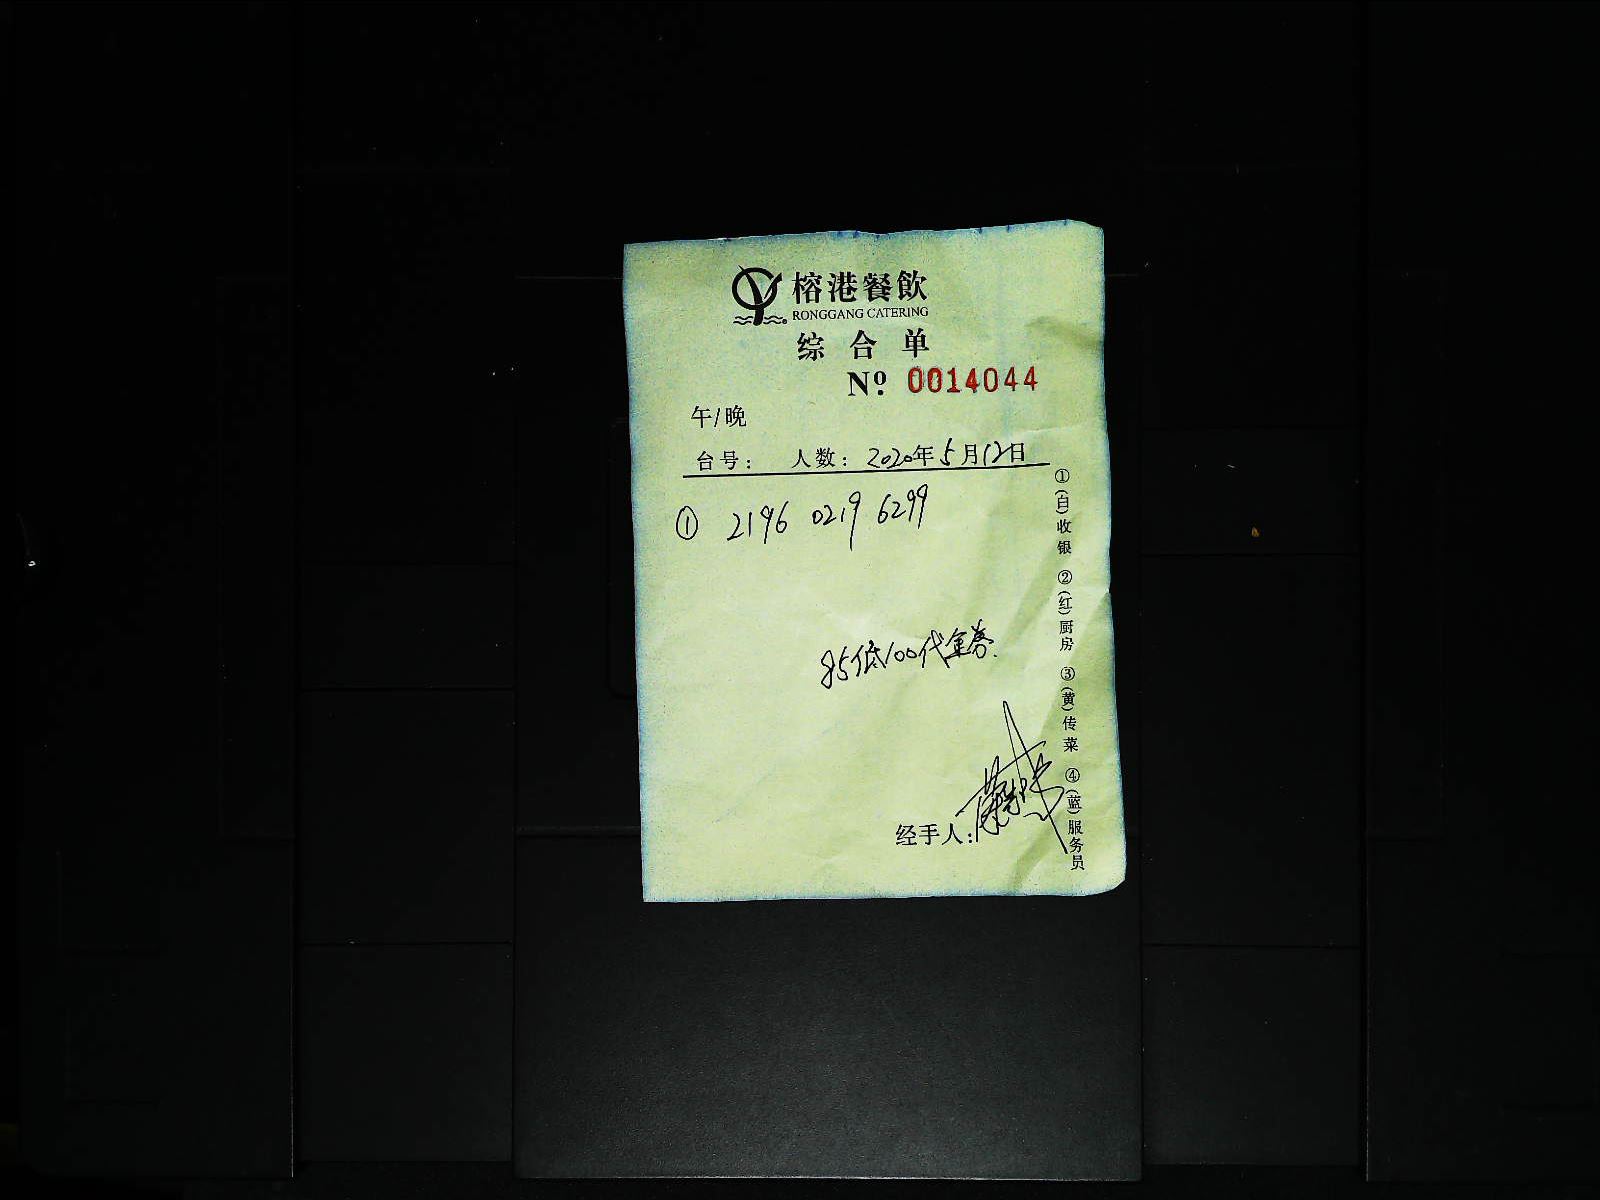 榕港餐飲
RONGGANG CATERING
综合单
Nº 0014044
午/晚
台号: 人数: 2020年5月12日
① 2196 0219 6299
85低100代金券.
经手人:
①(白)收银 ②(红)厨房 ③(黄)传菜 ④(蓝)服务员